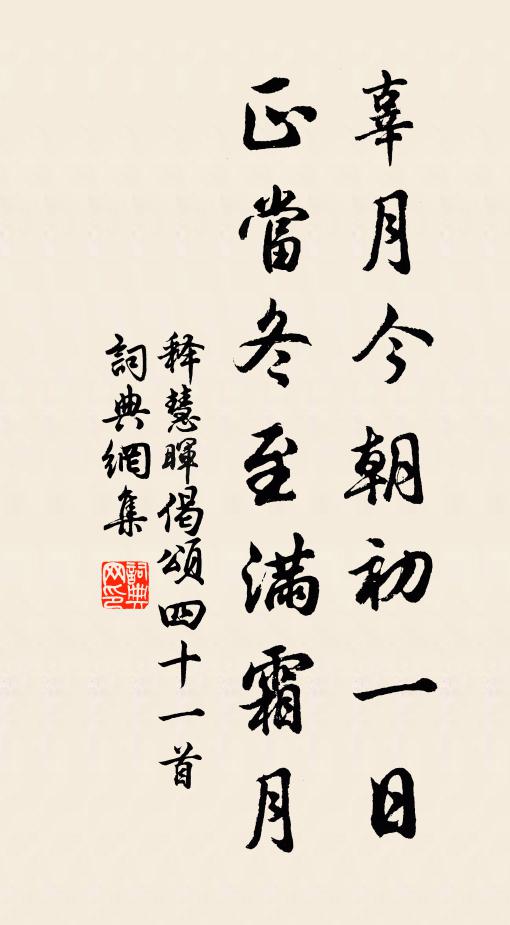 辜月今朝初一日
正當冬至滿霜月
释慧暉偈頌四十一首
詞典網集
詞典网印